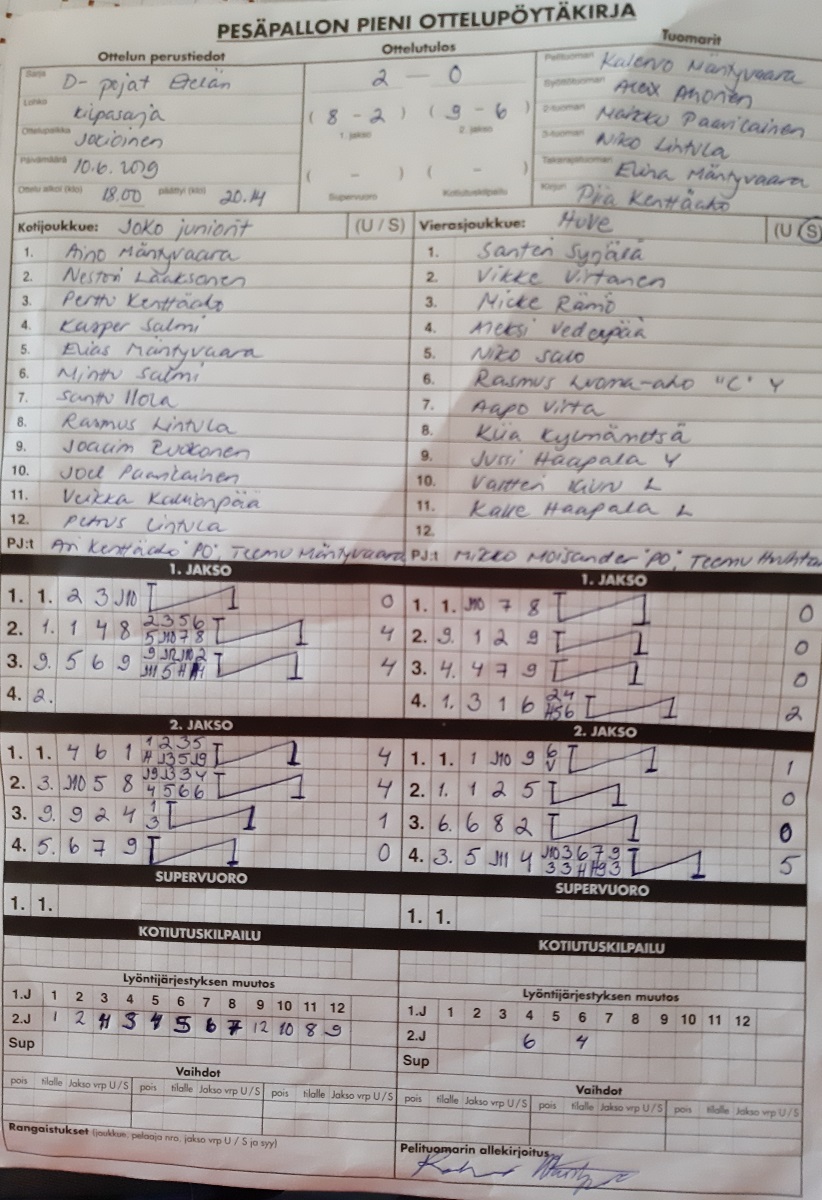 PESÄPALLON PIENI OTTELUPÖYTÄKIRJA
Ottelun perustiedot
Ottelutulos
Tuomarit
Sarja D-pojat Etelän
2 — 0
Pelituomari Kalervo Mäntyvaara
Lohko Kilpasarja
( 8 - 2 ) ( 9 - 6 )
1. jakso 2. jakso
Syöttötuomari Alex Ahonen
Ottelupaikka Jokioinen
2-tuomari Markku Paavilainen
Päivämäärä 10.6.2019
3-tuomari Niko Lintula
( - ) ( - )
Takarajatuomari Elina Mäntyvaara
Ottelu alkoi (klo) 18.00 päättyi (klo) 20.14
Supervuoro Kotiutuskilpailu
Kirjuri Piia Kenttäaho
Kotijoukkue: JoKo juniorit (U / S)
1. Aino Mäntyvaara
2. Nestori Laaksonen
3. Perttu Kenttäaho
4. Kasper Salmi
5. Elias Mäntyvaara
6. Minttu Salmi
7. Santtu Ilola
8. Rasmus Lintula
9. Joacim
10. Joel Paavilainen
11. Veikka
12. Petrus Lintula
PJ:t Ari Kenttäaho "PO", Teemu Mäntyvaara
Vierasjoukkue: HuVe (U / S)
1. Santeri Syrjälä
2. Vikke Virtanen
3. Micke Rämö
4. Aleksi Vedenpää
5. Niko Salo
6. Rasmus Luoma-aho "C" Y
7. Aapo Virta
8. Kiia Kylmämetsä
9. Jussi Haapala Y
10. Valtteri L
11. Kalle Haapala L
12.
PJ:t Mikko Moisander "PO", Teemu
1. JAKSO
1. 1. 2 3 J10 1 0
2. 1. 1 4 8 2 3 5 6 1 4
5 J10 7 8
3. 9. 5 6 9 1 4
4. 2.
1. JAKSO
1. 1. J10 7 8 1 0
2. 9. 1 2 9 1 0
3. 4. 4 7 9 1 0
4. 1. 3 1 6 2 4 1 2
H56
2. JAKSO
1. 1. 4 6 1 1 2 3 5 1 4
2. 3. J10 5 8 1 4
4 5 6 6
3. 9. 9 2 4 1 1 1
3
4. 5. 6 7 9 1 0
2. JAKSO
1. 1. 1 J10 9 6 1 1
V
2. 1. 1 2 5 1 0
3. 6. 6 8 2 1 0
4. 3. 5 J11 4 J10 3 6 7 9 1 5
SUPERVUORO
1. 1.
SUPERVUORO
1. 1.
KOTIUTUSKILPAILU
KOTIUTUSKILPAILU
Lyöntijärjestyksen muutos
1.J 1 2 3 4 5 6 7 8 9 10 11 12
2.J 1 2 11 3 4 5 6 7 12 10 8 9
Sup
Lyöntijärjestyksen muutos
1.J 1 2 3 4 5 6 7 8 9 10 11 12
2.J 6 4
Sup
Vaihdot
pois tilalle Jakso vrp U / S pois tilalle Jakso vrp U / S pois tilalle Jakso vrp U / S
Vaihdot
pois tilalle Jakso vrp U / S pois tilalle Jakso vrp U / S pois tilalle Jakso vrp U / S
Rangaistukset (joukkue, pelaaja nro, jakso vrp U / S ja syy)
Pelituomarin allekirjoitus